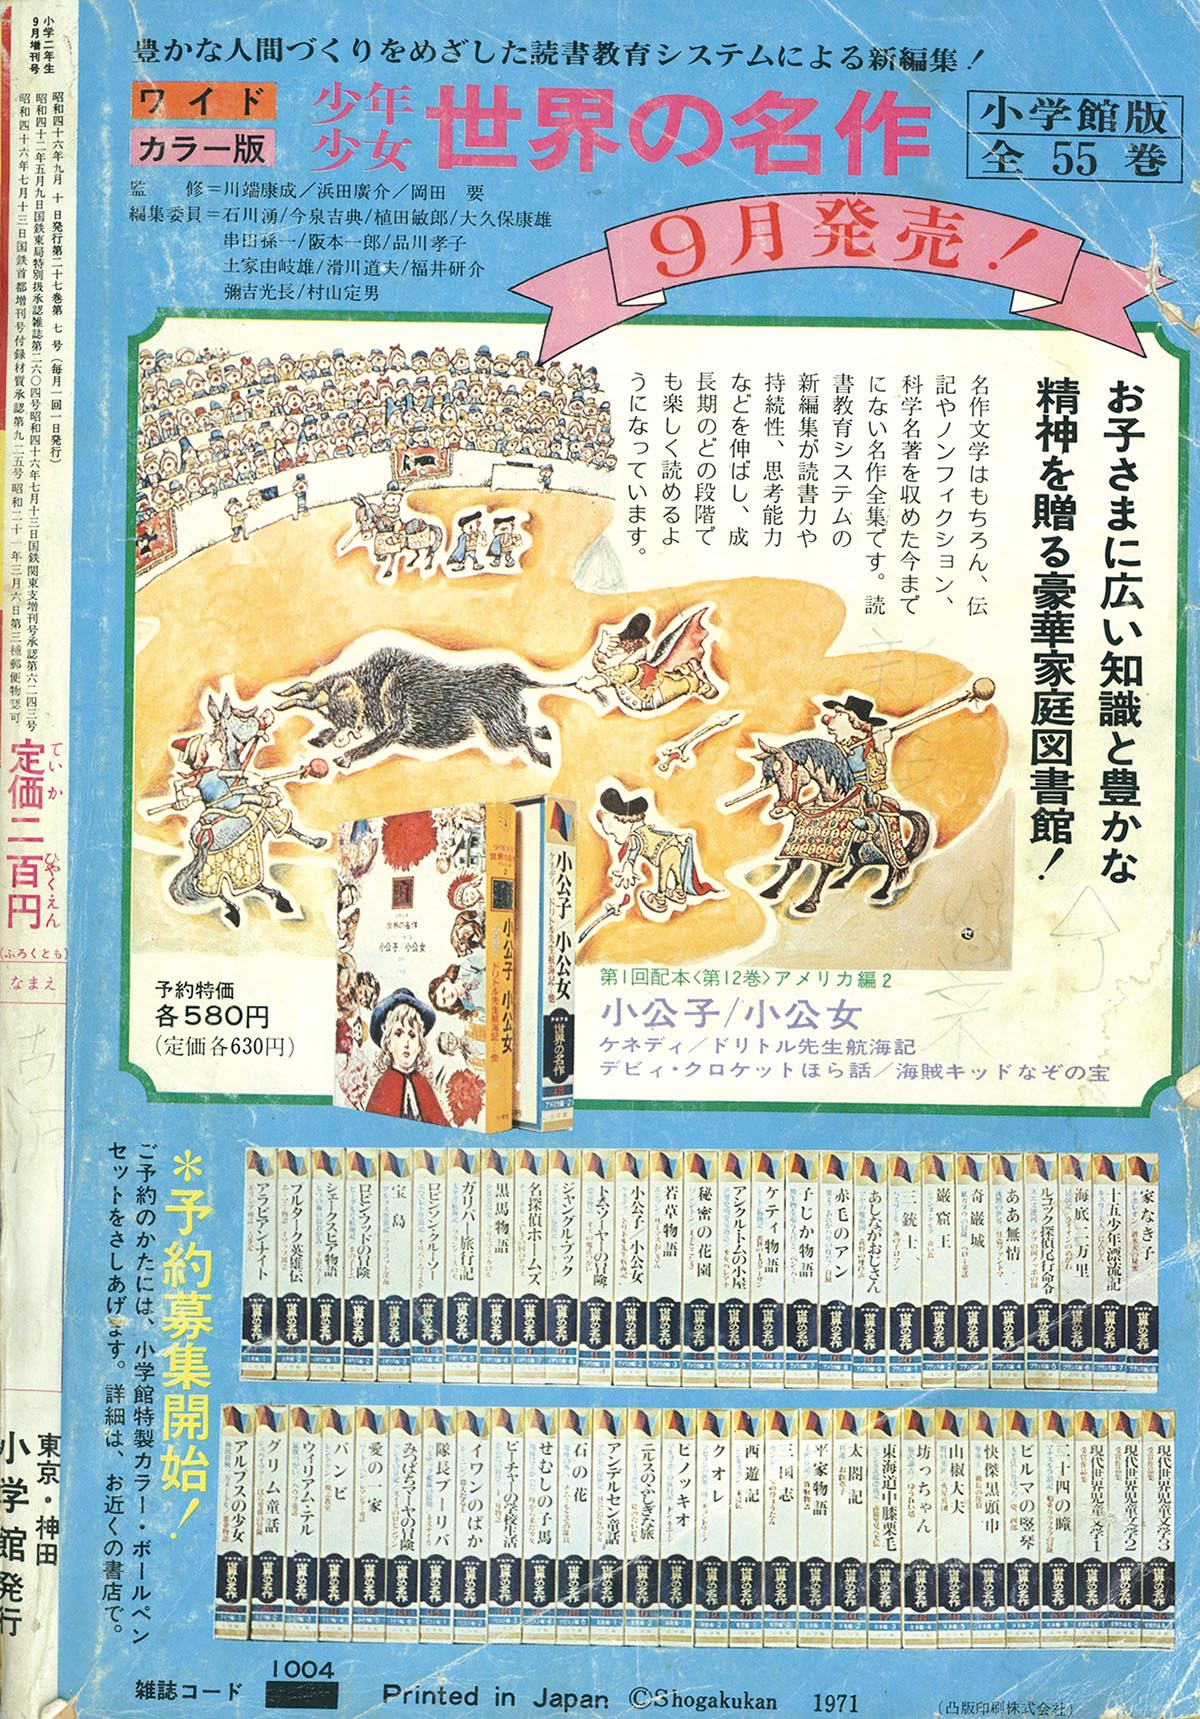 豊かな人間づくりをめざした読書教育システムによる新編集！
ワイド
カラー版
少年
少女
世界の名作
小学館版
全55巻
監　修＝川端康成／浜田廣介／岡田　要
編集委員＝石川湧/今泉吉典/植田敏郎/大久保康雄
串田孫一/阪本一郎/品川孝子
土家由岐雄/滑川道夫/福井研介
彌吉光長/村山定男
9月発売！
お子さまに広い知識と豊かな
精神を贈る豪華家庭図書館！
名作文学はもちろん、伝
記やノンフィクション、
科学名著を収めた今まで
にない名作全集です。読
書教育システムの
新編集が読書力や
持続性、思考能力
などを伸ばし、成
長期のどの段階で
も楽しく読めるよ
うになっています。
予約特価
各580円
(定価各630円)
世界の名作
小公子/小公女
小公子 小公女
ドリトル先生航海記…他
小公子 小公女
ケネディ/ドリトル先生航海記・他
世界の名作
第1回配本〈第12巻〉アメリカ編2
小公子/小公女
ケネディ／ドリトル先生航海記
デビィ・クロケットほら話／海賊キッドなぞの宝
＊予約募集開始！
ご予約のかたには、小学館特製カラー・ボールペン
セットをさしあげます。詳細は、お近くの書店で。
アラビアンナイト
プルターク英雄伝
シェークスピア物語
ロビンフッドの冒険
宝島
ロビンソン・クルーソー
ガリバー旅行記
黒馬物語
名探偵ホームズ
ジャングルブック
トム・ソーヤーの冒険
小公子/小公女
若草物語
秘密の花園
アンクルトムの小屋
ケティ物語
子じか物語
赤毛のアン
あしながおじさん
三銃士
巌窟王
奇巌城
ああ無情
ルコック探偵尾行命令
海底二万里
十五少年漂流記
家なき子
アルプスの少女
グリム童話
ウィリアム・テル
バンビ
愛の一家
みつばちマーヤの冒険
隊長ブーリバ
イワンのばか
ビーチャの学校生活
せむしの子馬
石の花
アンデルセン童話
ニルスのふしぎな旅
ピノッキオ
クオレ
西遊記
三国志
平家物語
太閤記
東海道中膝栗毛
坊っちゃん
山椒大夫
快傑黒頭巾
ビルマの竪琴
二十四の瞳
現代世界児童文学1
現代世界児童文学2
現代世界児童文学3
雑誌コード
1004
Printed in Japan ©Shogakukan 1971
(凸版印刷株式会社)
小学二年生
9月増刊号
昭和四十六年九月十日発行第二十七巻第七号(毎月一回一日発行)
昭和四十二年五月九日国鉄東局特別扱承認雑誌第二六〇四号昭和四十六年七月十三日国鉄関東支増刊号承認第六二四三号
昭和四十六年七月十三日国鉄首都増刊号付録材質承認第九二五号昭和二十一年三月六日第三種郵便物認可
定価二百円
ていか
ひゃくえん
(ふろくとも)
なまえ
東京・神田
小学館発行